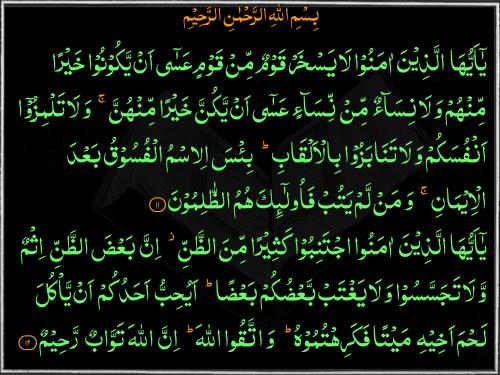 بِسْمِ اللهِ الرَّحْمٰنِ الرَّحِيْمِ
يٰٓاَيُّهَا الَّذِيْنَ اٰمَنُوْا لَا يَسْخَرْ قَوْمٌ مِّنْ قَوْمٍ عَسٰٓى اَنْ يَّكُوْنُوْا خَيْرًا
مِّنْهُمْ وَلَا نِسَآءٌ مِّنْ نِّسَآءٍ عَسٰٓى اَنْ يَّكُنَّ خَيْرًا مِّنْهُنَّ ۚ وَلَا تَلْمِزُوْٓا
اَنْفُسَكُمْ وَلَا تَنَابَزُوْا بِالْاَلْقَابِ ؕ بِئْسَ الِاسْمُ الْفُسُوْقُ بَعْدَ
الْاِيْمَانِ ۚ وَمَنْ لَّمْ يَتُبْ فَاُولٰٓئِكَ هُمُ الظّٰلِمُوْنَ ۱۱
يٰٓاَيُّهَا الَّذِيْنَ اٰمَنُوا اجْتَنِبُوْا كَثِيْرًا مِّنَ الظَّنِّ ۫ اِنَّ بَعْضَ الظَّنِّ اِثْمٌ
وَّلَا تَجَسَّسُوْا وَلَا يَغْتَبْ بَّعْضُكُمْ بَعْضًا ؕ اَيُحِبُّ اَحَدُكُمْ اَنْ يَّاْكُلَ
لَحْمَ اَخِيْهِ مَيْتًا فَكَرِهْتُمُوْهُ ؕ وَاتَّقُوا اللهَ ؕ اِنَّ اللهَ تَوَّابٌ رَّحِيْمٌ ۱۲